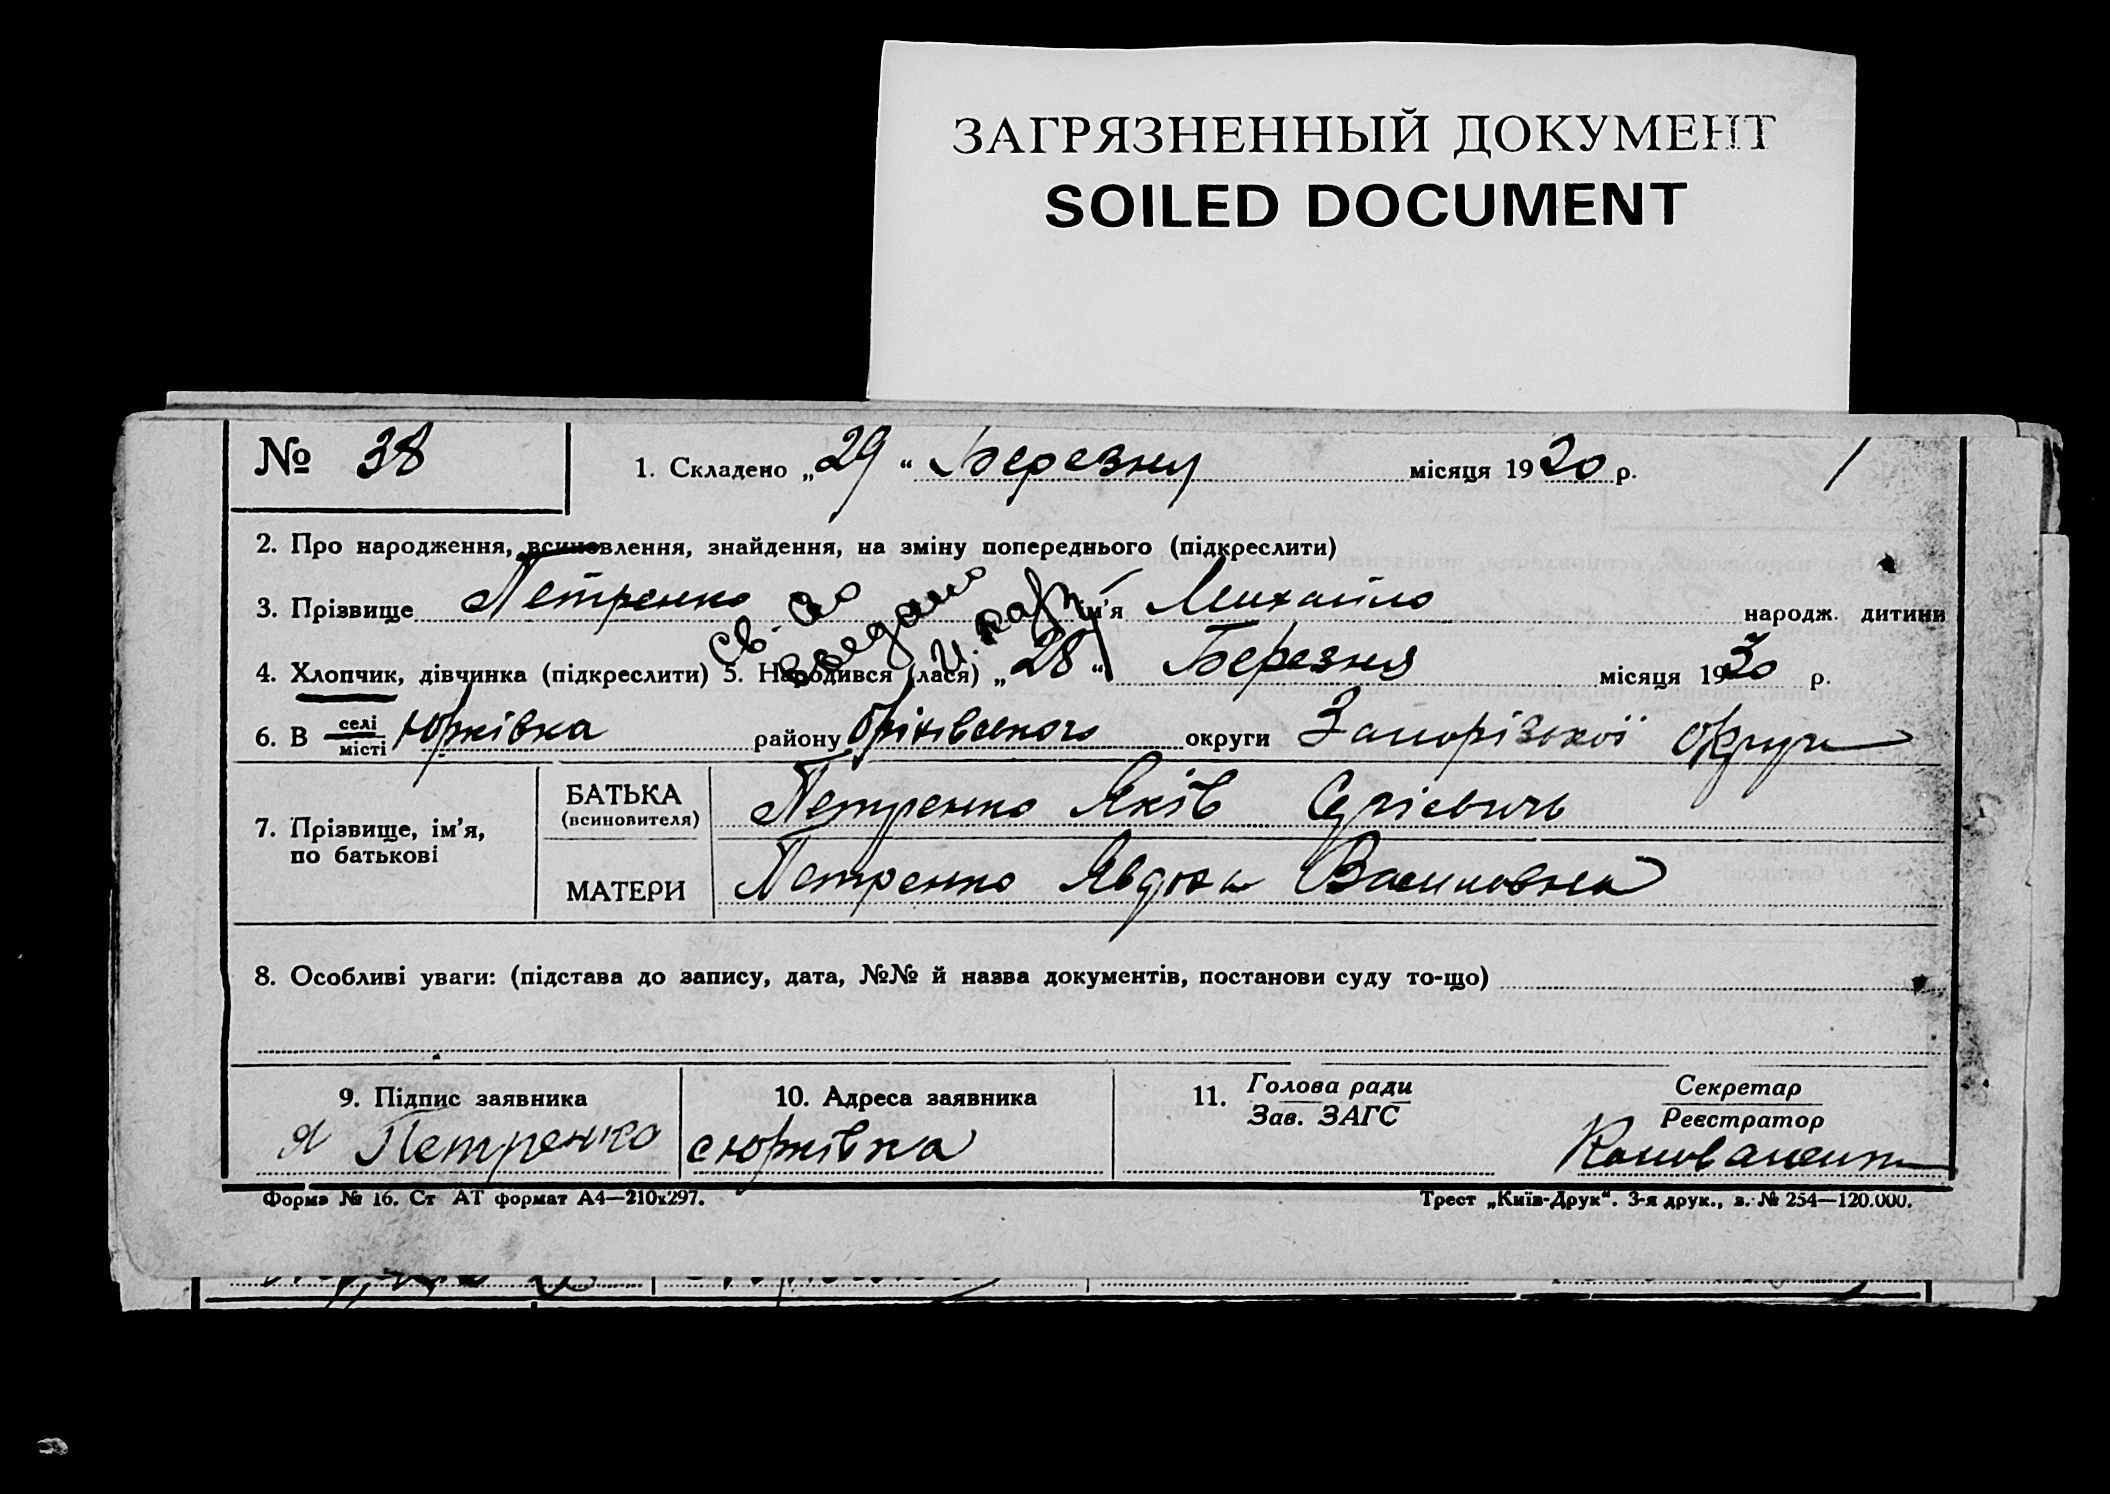 ЗАГРЯЗНЕННЫЙ ДОКУМЕНТ
SOILED DOCUMENT
№ 38
1. Складено „29“ Березня місяця 1930 р.
2. Про народження, всиновлення, знайдення, на зміну попереднього (підкреслити)
3. Прізвище Петренко ім'я Михайло народж. дитини
Св-во
видано
4. Хлопчик, дівчинка (підкреслити) 5. Народився (лася) „28“ Березня місяця 1930 р.
6. В селі
місті Юрківка району Оріхівського округи Запорізької округи
7. Прізвище, ім'я,
по батькові
БАТЬКА
(всиновителя)
Петренко Яків
МАТЕРИ
Петренко Явдоха Василовна
8. Особливі уваги: (підстава до запису, дата, №№ й назва документів, постанови суду то-що)
9. Підпис заявника
Я Петренко
10. Адреса заявника
с Юрківка
11. Голова ради
Зав. ЗАГС
Секретар
Реєстратор
Форма № 16. Ст АТ формат А4—210х297.
Трест „Київ-Друк“. 3-я друк., з. № 254—120.000.